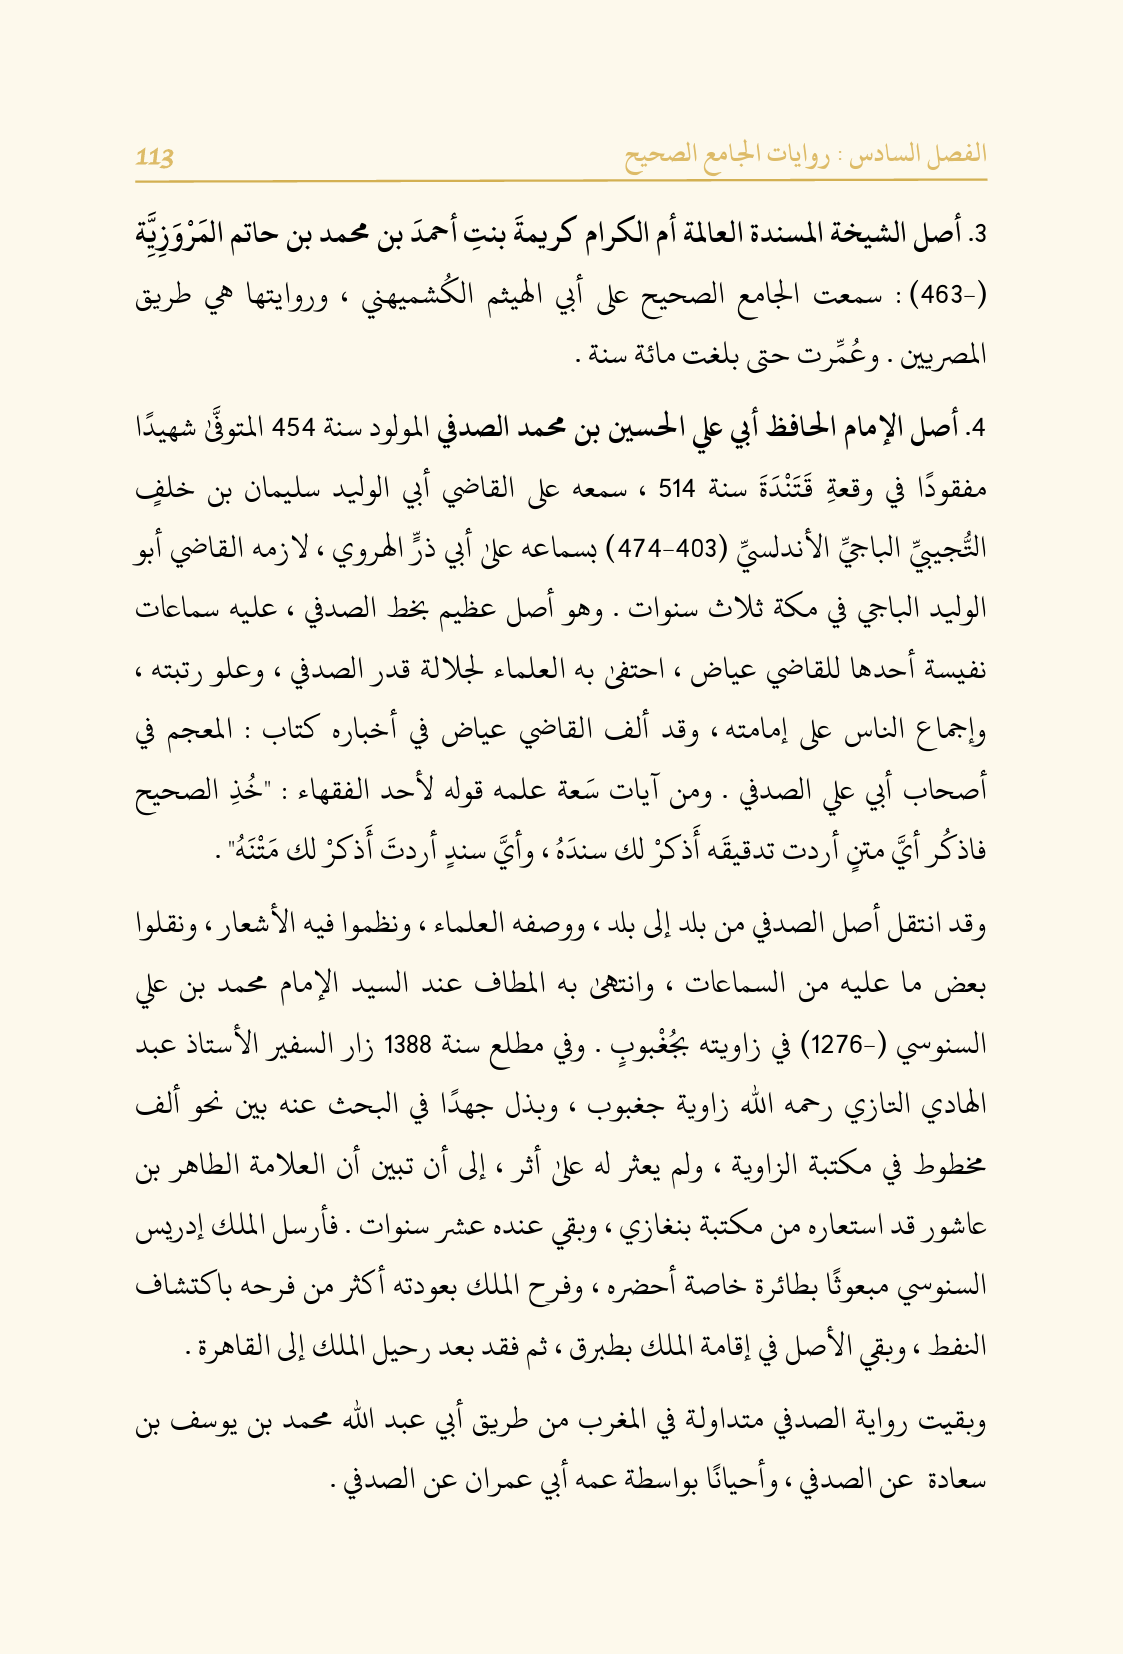 الفصل السادس : روايات الجامع الصحيح 113
3. أصل الشيخة المسندة العالمة أم الكرام كريمةَ بنتِ أحمدَ بن محمد بن حاتم المَرْوَزِيَّةِ
(-463) : سمعت الجامع الصحيح على أبي الهيثم الكُشميهني ، وروايتها هي طريق
المصريين . وعُمِّرت حتى بلغت مائة سنة .
4. أصل الإمام الحافظ أبي علي الحسين بن محمد الصدفي المولود سنة 454 المتوفَّىٰ شهيدًا
مفقودًا في وقعةِ قَتَنْدَةَ سنة 514 ، سمعه على القاضي أبي الوليد سليمان بن خلفٍ
التُّجيبيِّ الباجيِّ الأندلسيِّ (403-474) بسماعه علىٰ أبي ذرٍّ الهروي ، لازمه القاضي أبو
الوليد الباجي في مكة ثلاث سنوات . وهو أصل عظيم بخط الصدفي ، عليه سماعات
نفيسة أحدها للقاضي عياض ، احتفىٰ به العلماء لجلالة قدر الصدفي ، وعلو رتبته ،
وإجماع الناس على إمامته ، وقد ألف القاضي عياض في أخباره كتاب : المعجم في
أصحاب أبي علي الصدفي . ومن آيات سَعة علمه قوله لأحد الفقهاء : "خُذِ الصحيح
فاذكُر أيَّ متنٍ أردت تدقيقَه أَذكرْ لك سندَهُ ، وأيَّ سندٍ أردتَ أَذكرْ لك مَتْنَهُ" .
وقد انتقل أصل الصدفي من بلد إلى بلد ، ووصفه العلماء ، ونظموا فيه الأشعار ، ونقلوا
بعض ما عليه من السماعات ، وانتهىٰ به المطاف عند السيد الإمام محمد بن علي
السنوسي (-1276) في زاويته بجُغْبوبٍ . وفي مطلع سنة 1388 زار السفير الأستاذ عبد
الهادي التازي رحمه الله زاوية جغبوب ، وبذل جهدًا في البحث عنه بين نحو ألف
مخطوط في مكتبة الزاوية ، ولم يعثر له علىٰ أثر ، إلى أن تبين أن العلامة الطاهر بن
عاشور قد استعاره من مكتبة بنغازي ، وبقي عنده عشر سنوات . فأرسل الملك إدريس
السنوسي مبعوثًا بطائرة خاصة أحضره ، وفرح الملك بعودته أكثر من فرحه باكتشاف
النفط ، وبقي الأصل في إقامة الملك بطبرق ، ثم فقد بعد رحيل الملك إلى القاهرة .
وبقيت رواية الصدفي متداولة في المغرب من طريق أبي عبد الله محمد بن يوسف بن
سعادة عن الصدفي ، وأحيانًا بواسطة عمه أبي عمران عن الصدفي .